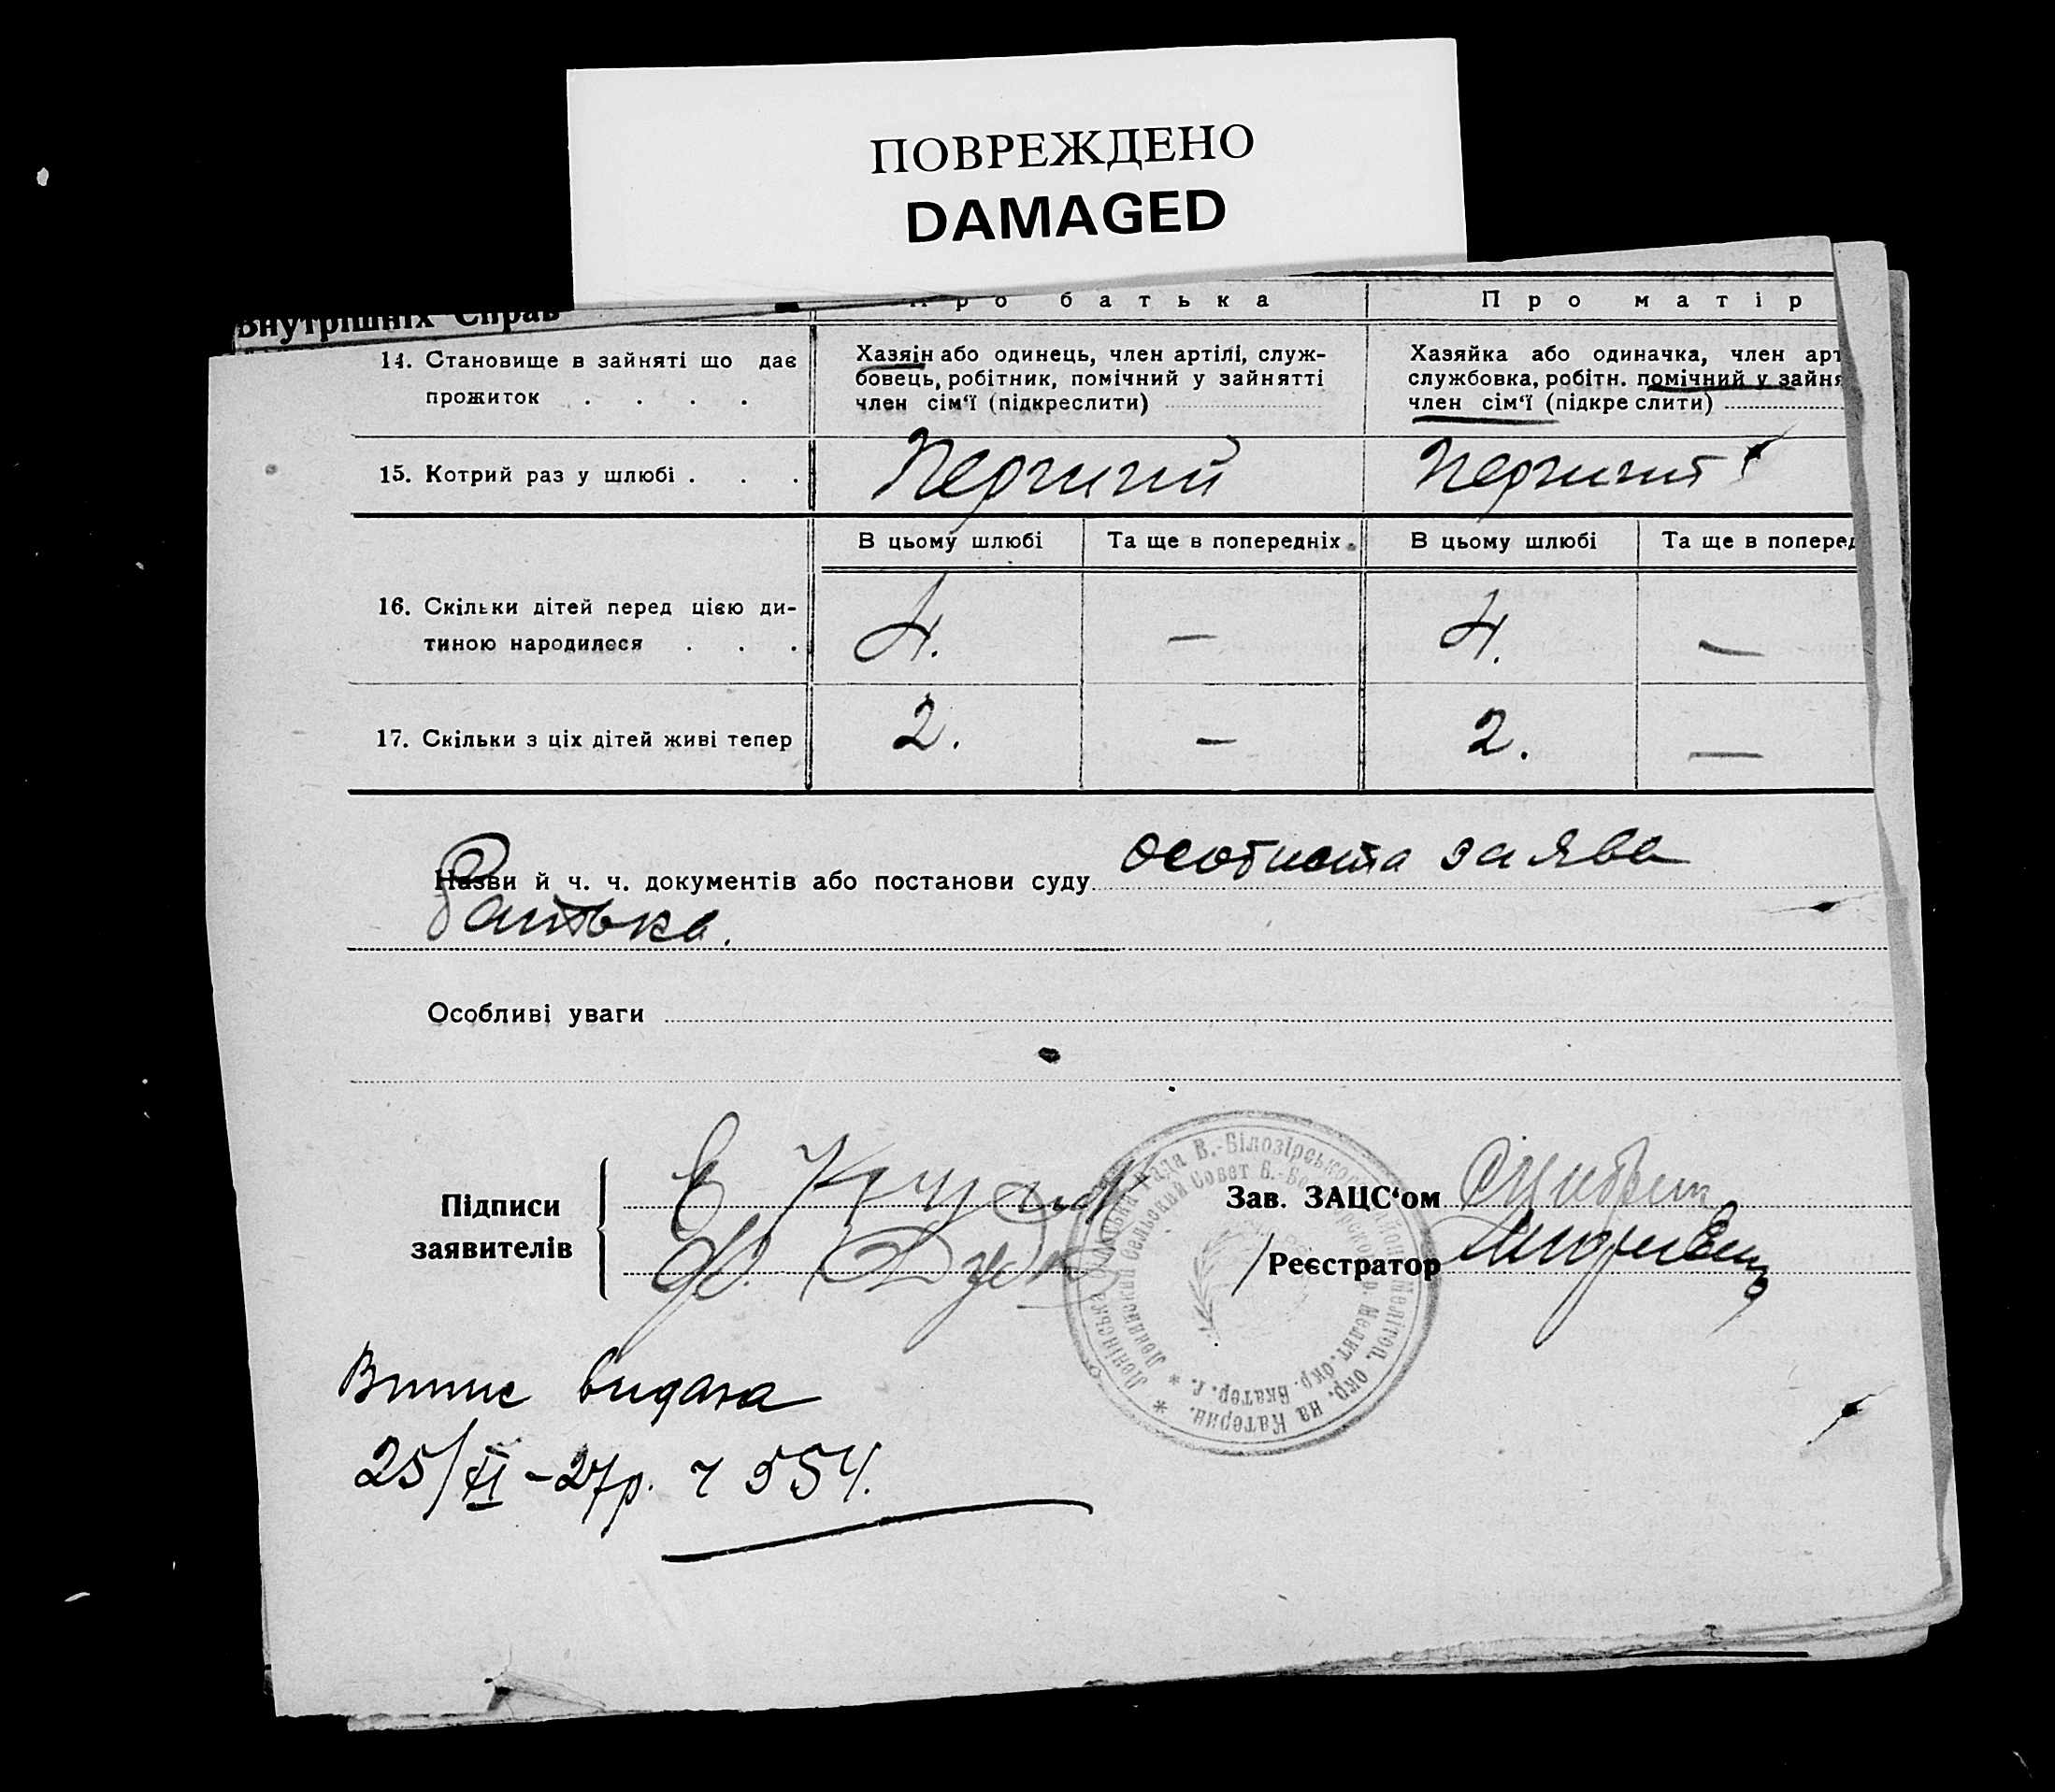 ПОВРЕЖДЕНО
DAMAGED
Внутрішніх Справ
Про батька
Про матір
14. Становище в зайняті що дає
прожиток . . . .
Хазяїн або одинець, член артілі, служ-
бовець, робітник, помічний у зайнятті
член сім‘ї (підкреслити)
Хазяйка або одиначка, член арт
службовка, робітн. помічний у зайня
член сім‘ї (підкреслити)
15. Котрий раз у шлюбі . . .
Перший
Перший
В цьому шлюбі
Та ще в попередніх
В цьому шлюбі
Та ще в поперед
16. Скільки дітей перед цією ди-
тиною народилося . . .
4. — 4. —
17. Скільки з ціх дітей живі тепер
2. — 2. —
Назви й ч. ч. документів або постанови суду особиста заява
батька.
Особливі уваги
Підписи
заявителів
Зав. ЗАЦС‘ом
/Реєстратор
Ленінська Сільська Рада В.-Білозірського Району Мелітоп. окр. на Катерин.
Ленинский Сельский Совет Б.-Белозерского р. Мелит. окр. Екатер. г.
Випис видана
25/XI-27р. ч 554.